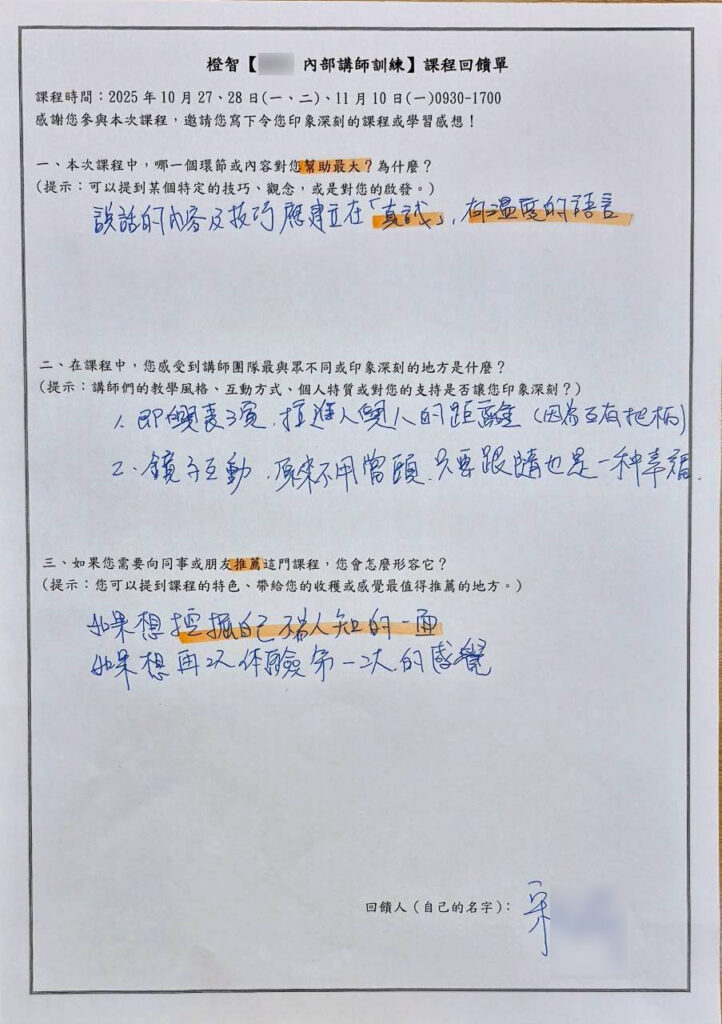 橙智【 內部講師訓練】課程回饋單
課程時間：2025 年 10 月 27、28 日(一、二)、11 月 10 日(一)0930-1700
感謝您參與本次課程，邀請您寫下令您印象深刻的課程或學習感想！
一、本次課程中，哪一個環節或內容對您幫助最大？為什麼？
(提示：可以提到某個特定的技巧、觀念，或是對您的啟發。)
說話的內容及技巧應建立在「真誠」，有溫度的語言
二、在課程中，您感受到講師團隊最與眾不同或印象深刻的地方是什麼？
(提示：講師們的教學風格、互動方式、個人特質或對您的支持是否讓您印象深刻？)
1. 即興表演，拉進人與人的距離 (因為互有把柄)
2. 鏡子互動，原來不用當頭，只要跟隨也是一种幸福.
三、如果您需要向同事或朋友推薦這門課程，您會怎麼形容它？
(提示：您可以提到課程的特色、帶給您的收穫或感覺最值得推薦的地方。)
如果想挖掘自己不為人知的一面
如果想再次体驗第一次的感覺
回饋人（自己的名字）：